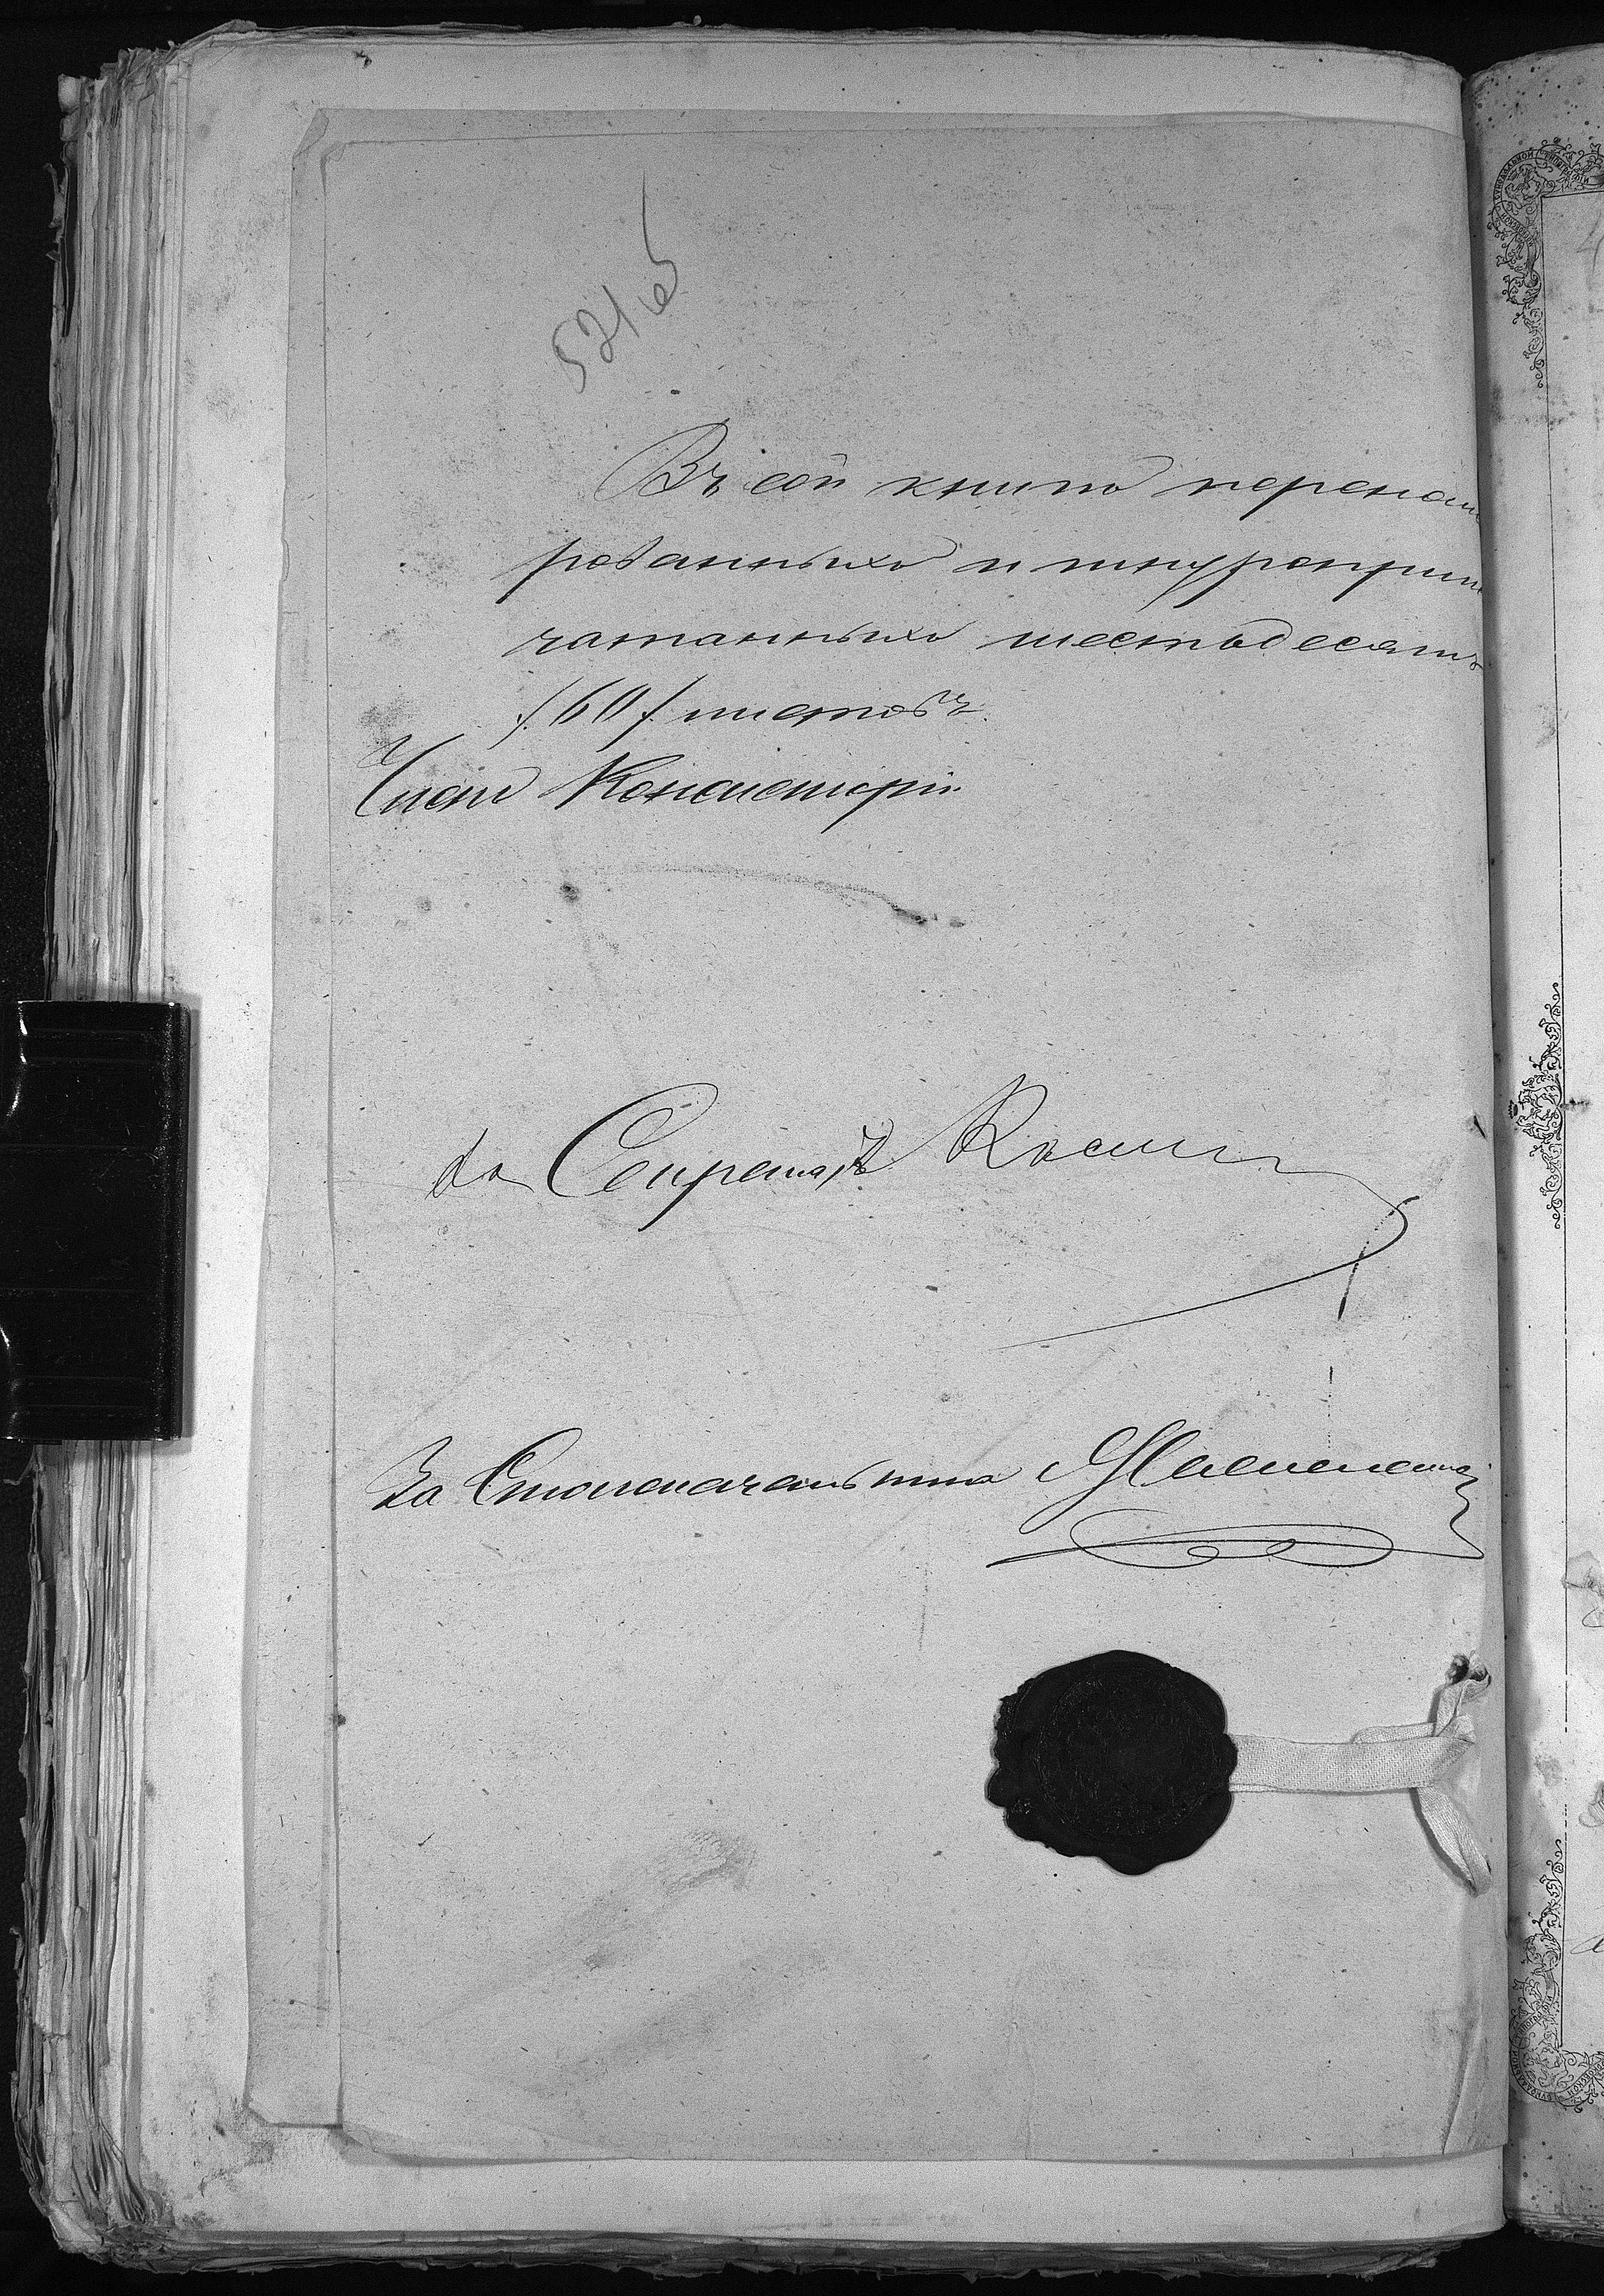 521 об
Въ сей книгѣ перенуме
рованныхъ и шнуроприпе
чатанныхъ шестьдесятъ
/60/ листовъ.
Членъ Консисторіи
За Секретаря
За Столоначальника